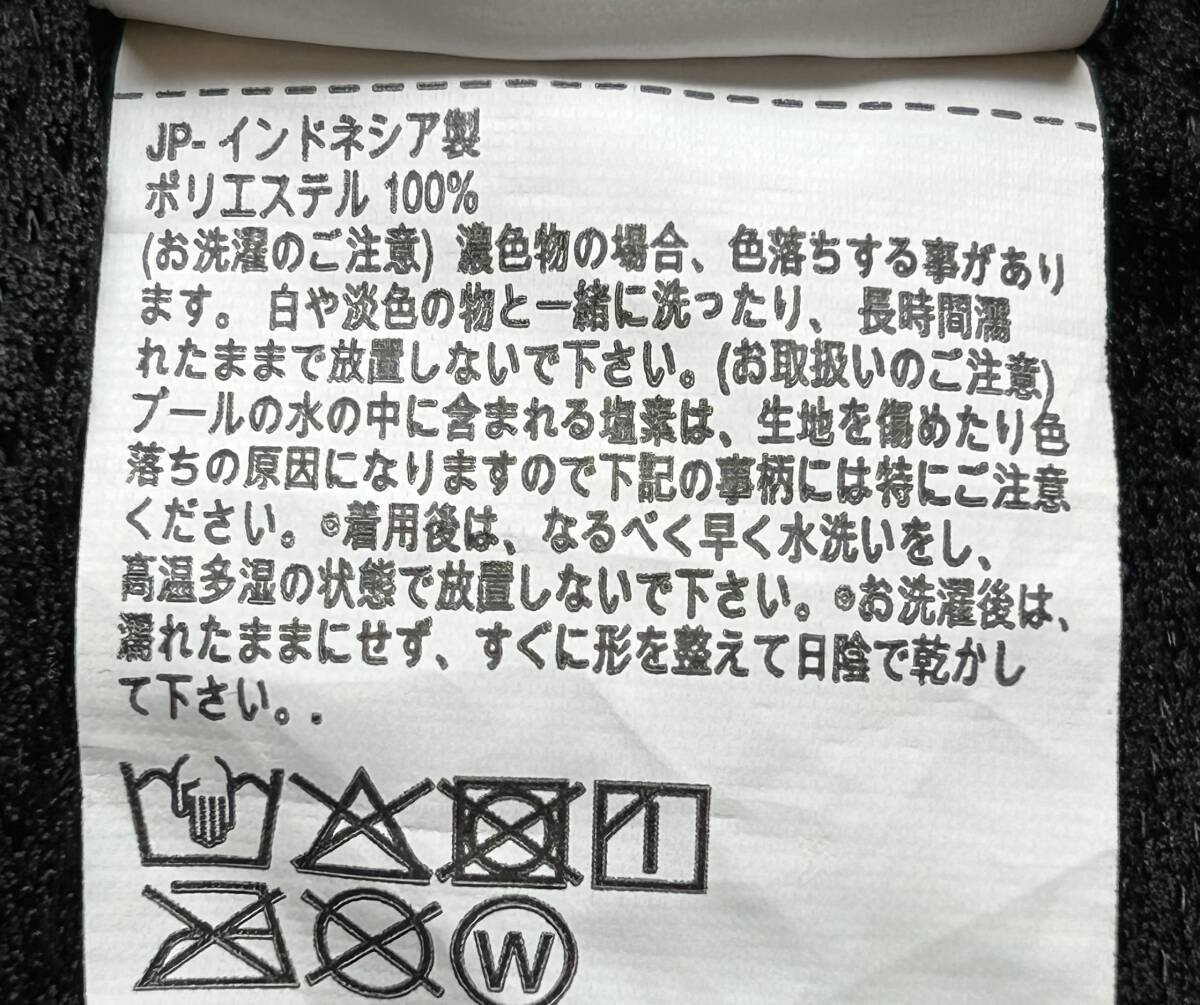 JP- インドネシア製
ポリエステル 100%
(お洗濯のご注意) 濃色物の場合、色落ちする事があり
ます。白や淡色の物と一緒に洗ったり、長時間濡
れたままで放置しないで下さい。(お取扱いのご注意)
プールの水の中に含まれる塩素は、生地を傷めたり色
落ちの原因になりますので下記の事柄には特にご注意
ください。◎着用後は、なるべく早く水洗いをし、
高温多湿の状態で放置しないで下さい。◎お洗濯後は、
濡れたままにせず、すぐに形を整えて日陰で乾かし
て下さい。.
W